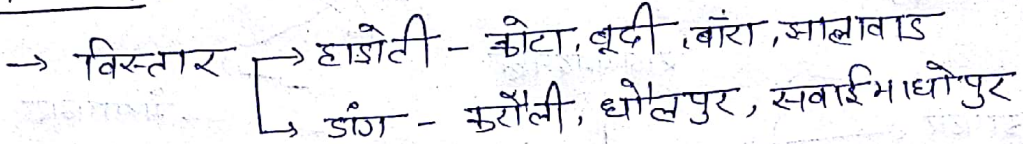 → विस्तार → हाडोती - कोटा, बूदी, बाँरा, झालावाड
↳ डांग - करौली, धौलपुर, सवाईमाधोपुर